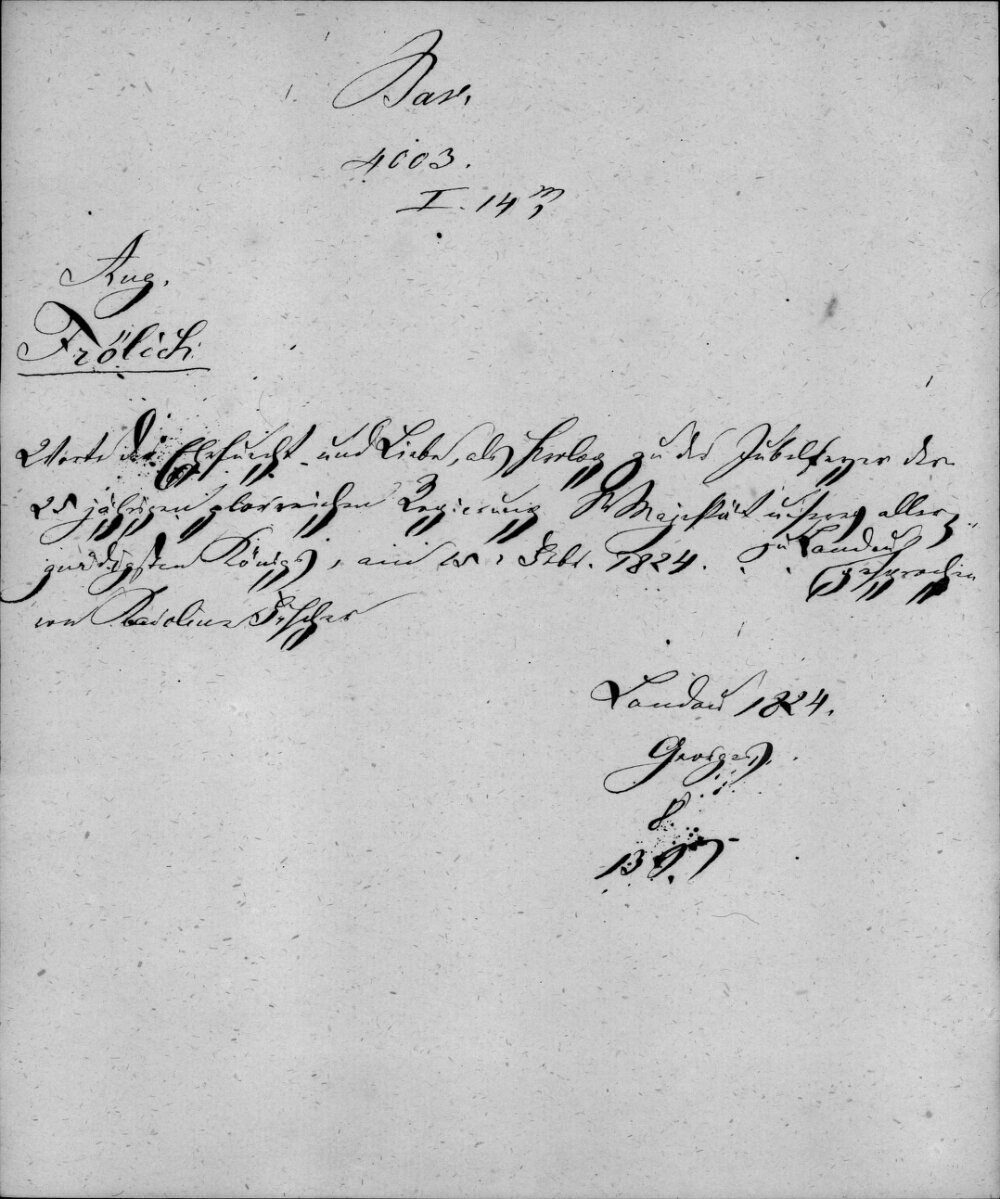 Bav.
4003.
I. 14 m
Aug.
Frölich
Worte der Ehrfurcht und Liebe, als Prolog zu der Jubelfeyer der
25 jährigen glorreichen Regierung Sr Majestät unsers aller-
gnädigsten Königs, am 15. Febr. 1824. zu Landau
gesprochen
von Karoline Fischer
Landau 1824.
Georges.
8.
13 S.